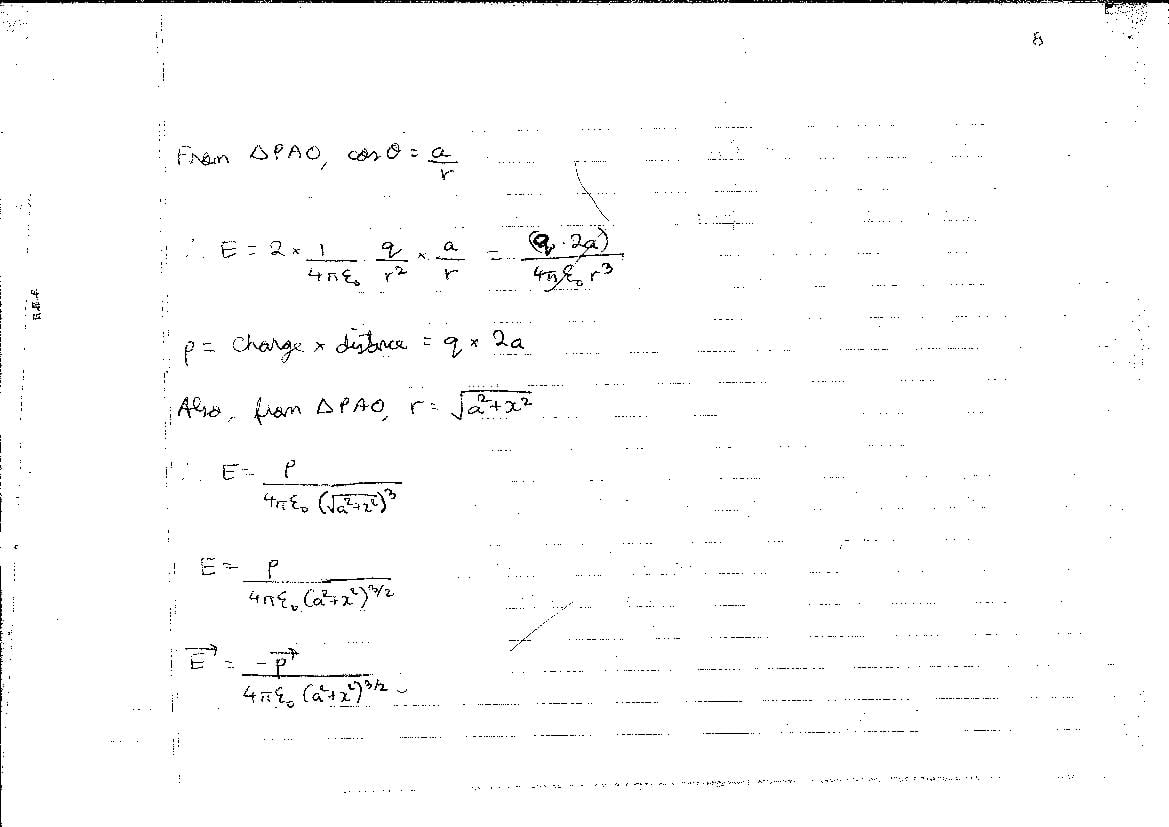 8
From ΔPAO, cosθ = a/r
∴ E = 2 × 1/4πε₀ q/r² × a/r = (q · 2a)/4πε₀ r³
p = charge × distance = q × 2a
Also, from ΔPAO, r = √(a²+x²)
∴ E = p/4πε₀ (√(a²+x²))³
E = p/4πε₀ (a²+x²)^3/2
E⃗ = -p⃗/4πε₀ (a²+x²)^3/2